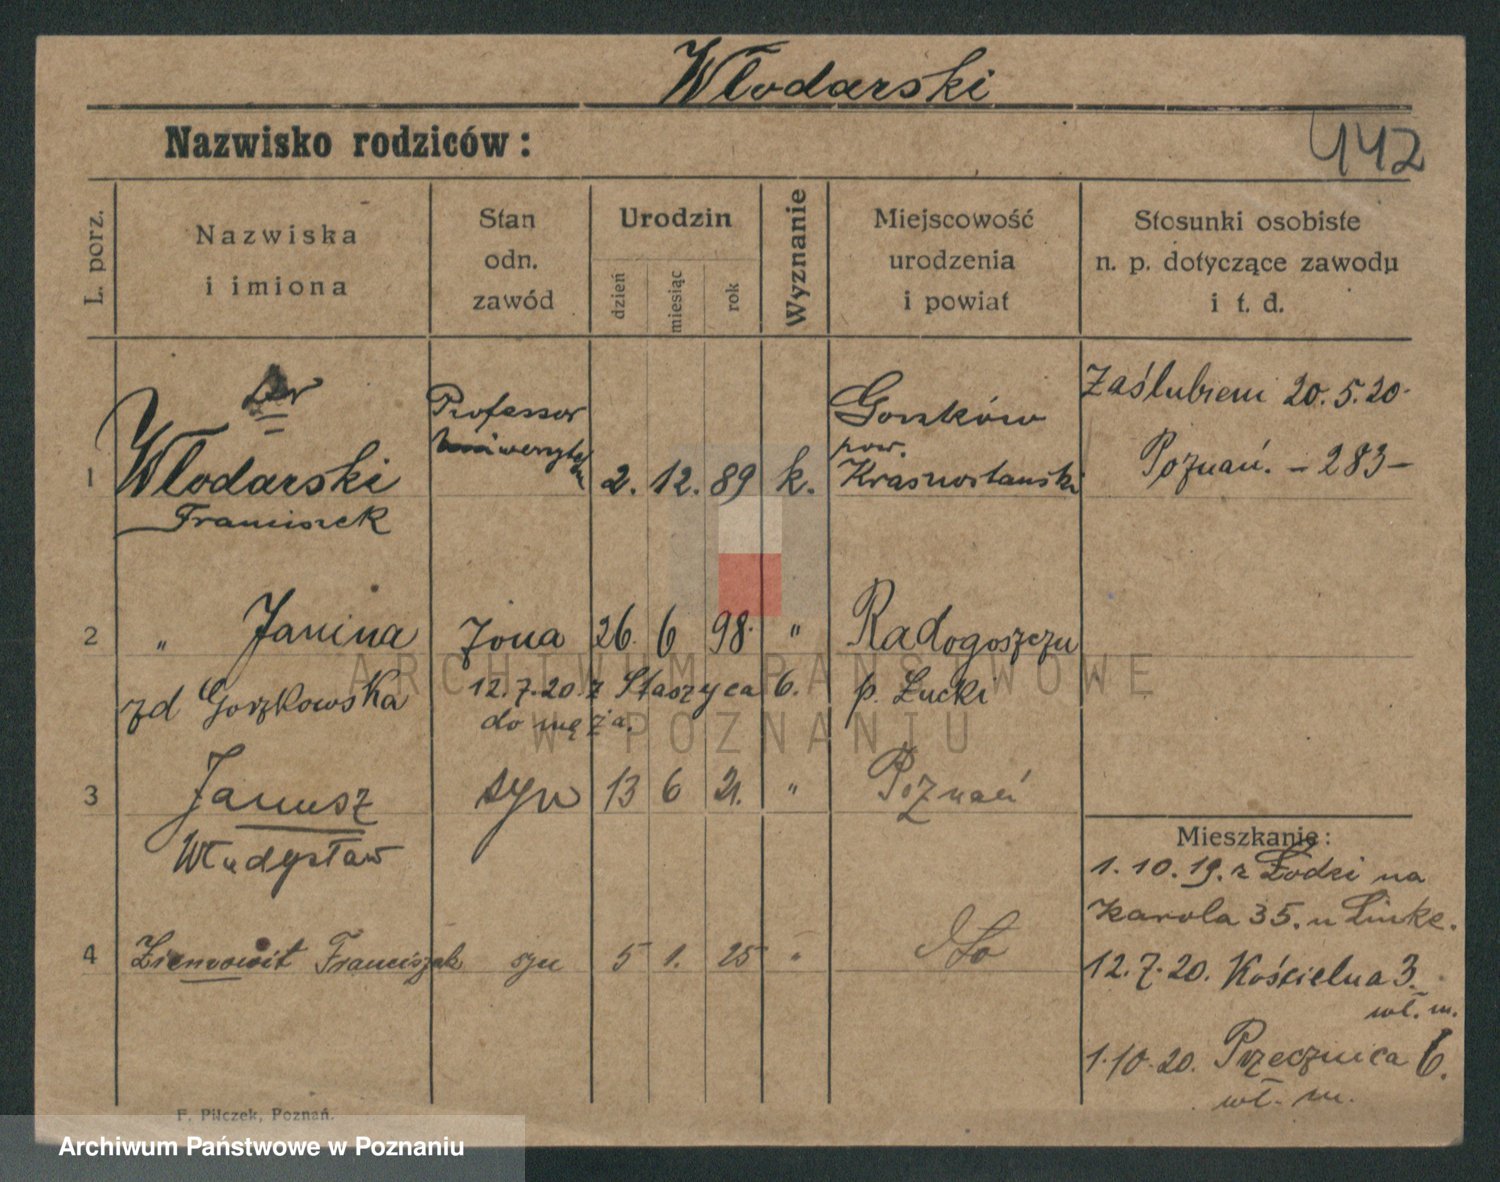 Włodarski
Nazwisko rodziców:
442
L. porz.
Nazwiska
i imiona
Stan
odn.
zawód
Urodzin
dzień
miesiąc
rok
Wyznanie
Miejscowość
urodzenia
i powiat
Stosunki osobiste
n. p. dotyczące zawodu
i t. d.
1
Dr
Włodarski
Franciszek
Professor
Uniwersytetu
2. 12. 89 k.
Gorzków
pow.
Krasnostawski
Zaślubieni 20.5.20.
Poznań. – 283 –
2 „ Janina żona 26. 6 98. " Radogoszczu
zd Gorzkowska 12.7.20. z Staszyca 6. p. Łucki
do męża.
3 Janusz syn 13 6 21. " Poznań
Władysław
4 Ziemowit Franciszek syn 5 1. 25 "
Mieszkanie:
1.10.19. z Łodzi na
Karola 35. u Linke.
12.7.20. Kościelna 3.
wł. m.
1.10.20. Przecznica 6.
wł. m.
F. Pilczek, Poznań.
ARCHIWUM PAŃSTWOWE
W POZNANIU
Archiwum Państwowe w Poznaniu